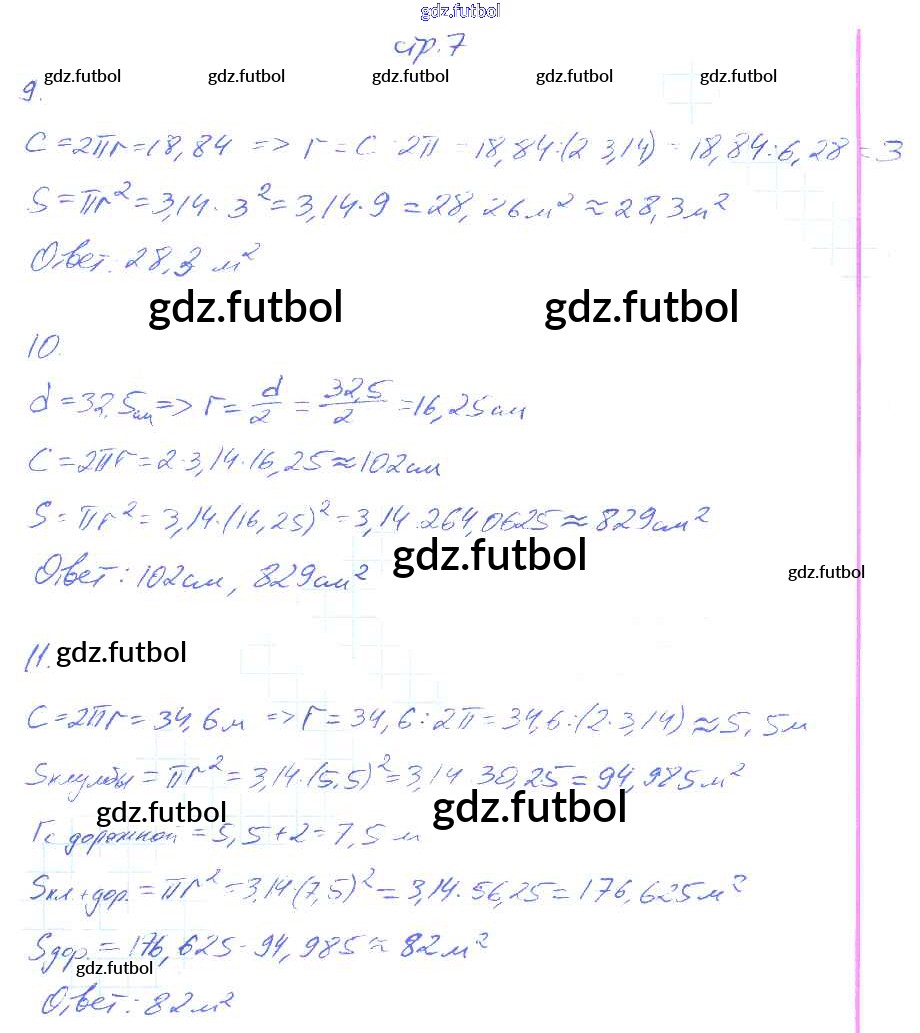 gdz.futbol
стр. 7
gdz.futbol gdz.futbol gdz.futbol gdz.futbol gdz.futbol
9.
C = 2πr = 18,84 => r = C : 2π = 18,84 : (2 · 3,14) = 18,84 : 6,28 = 3
S = πr² = 3,14 · 3² = 3,14 · 9 = 28,26 м² ≈ 28,3 м²
Ответ: 28,3 м²
gdz.futbol gdz.futbol
10.
d = 32,5 см => r = d/2 = 32,5/2 = 16,25 см
C = 2πr = 2 · 3,14 · 16,25 ≈ 102 см
S = πr² = 3,14 · (16,25)² = 3,14 · 264,0625 ≈ 829 см²
gdz.futbol
Ответ: 102 см, 829 см²
gdz.futbol
11.
gdz.futbol
C = 2πr = 34,6 м => r = 34,6 : 2π = 34,6 : (2 · 3,14) ≈ 5,5 м
Sклумбы = πr² = 3,14 · (5,5)² = 3,14 · 30,25 = 94,985 м²
gdz.futbol gdz.futbol
rс дорожкой = 5,5 + 2 = 7,5 м
Sкл.+дор. = πr² = 3,14 · (7,5)² = 3,14 · 56,25 = 176,625 м²
Sдор. = 176,625 - 94,985 ≈ 82 м²
gdz.futbol
Ответ: 82 м²